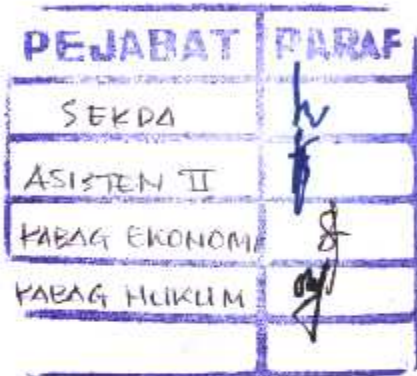 PEJABAT PARAF
SEKDA
ASISTEN II
KABAG EKONOMI
KABAG HUKUM